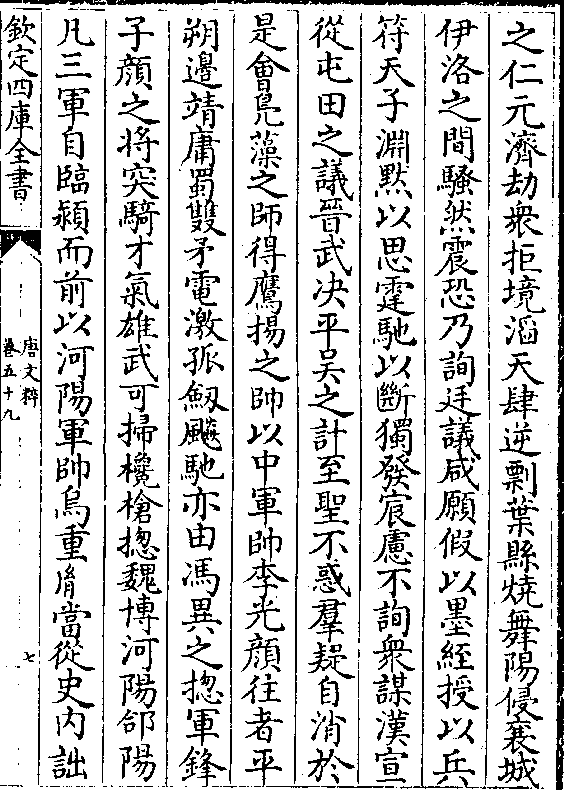 之仁元濟劫衆拒境滔天肆逆剽葉縣燒舞陽侵襄城
伊洛之間騷然震恐乃詢廷議咸願假以墨絰授以兵
符天子淵默以思霆馳以斷獨發宸慮不詢衆謀漢宣
從屯田之議晉武决平吳之計至聖不惑羣疑自消於
是會鳧藻之師得鷹揚之帥以中軍帥李光顔往者平
朔邊靖庸蜀雙矛電激孤劔飈馳亦由馮異之揔軍鋒
子顔之將突騎才氣雄武可掃欃槍揔魏博河陽郃陽
凡三軍自臨潁而前以河陽軍帥烏重胤當從史内詘
欽定四庫全書
唐文粹
卷五十九
七